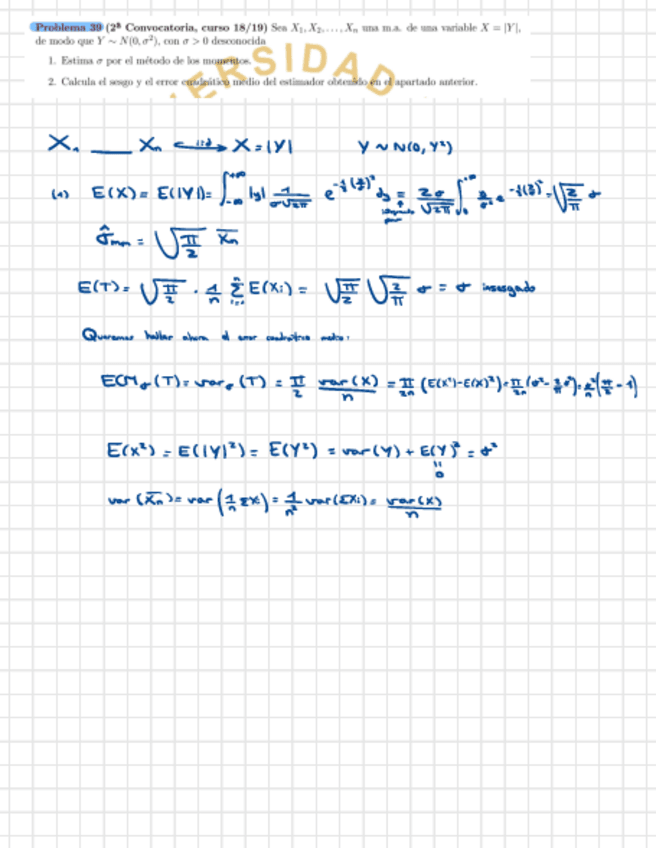 Problema 39 (2ª Convocatoria, curso 18/19) Sea X₁, X₂, …, Xₙ una m.a. de una variable X = |Y|,
de modo que Y ~ N(0, σ²), con σ > 0 desconocida
1. Estima σ por el método de los momentos.
2. Calcula el sesgo y el error cuadrático medio del estimador obtenido en el apartado anterior.
VERSIDAD
X₁ __ Xₙ iid X = |Y| Y ~ N(0, Y²)
(1) E(X) = E(|Y|) = ∫_{-∞}^{+∞} |y| 1/(σ√2π) e^{-½(y/σ)²} dy = 2σ/√2π ∫_0^{+∞} y/σ² e^{-½(y/σ)²} = √(2/π) σ
σ̂ₘₘ = √(π/2) X̄ₙ
E(T) = √(π/2) · 1/n Σ_{i=1}^{n} E(Xi) = √(π/2) √(2/π) σ = σ insesgado
Queremos hallar ahora el error cuadrático medio:
ECM_σ(T) = var_σ(T) = π/2 var(X)/n = π/2n (E(X²) - E(X)²) = π/2n (σ² - 2/π σ²) = σ²/n (π/2 - 1)
E(X²) = E(|Y|²) = E(Y²) = var(Y) + E(Y)² = σ²
"
0
var(X̄ₙ) = var(1/n ΣXi) = 1/n² var(ΣXi) = var(X)/n